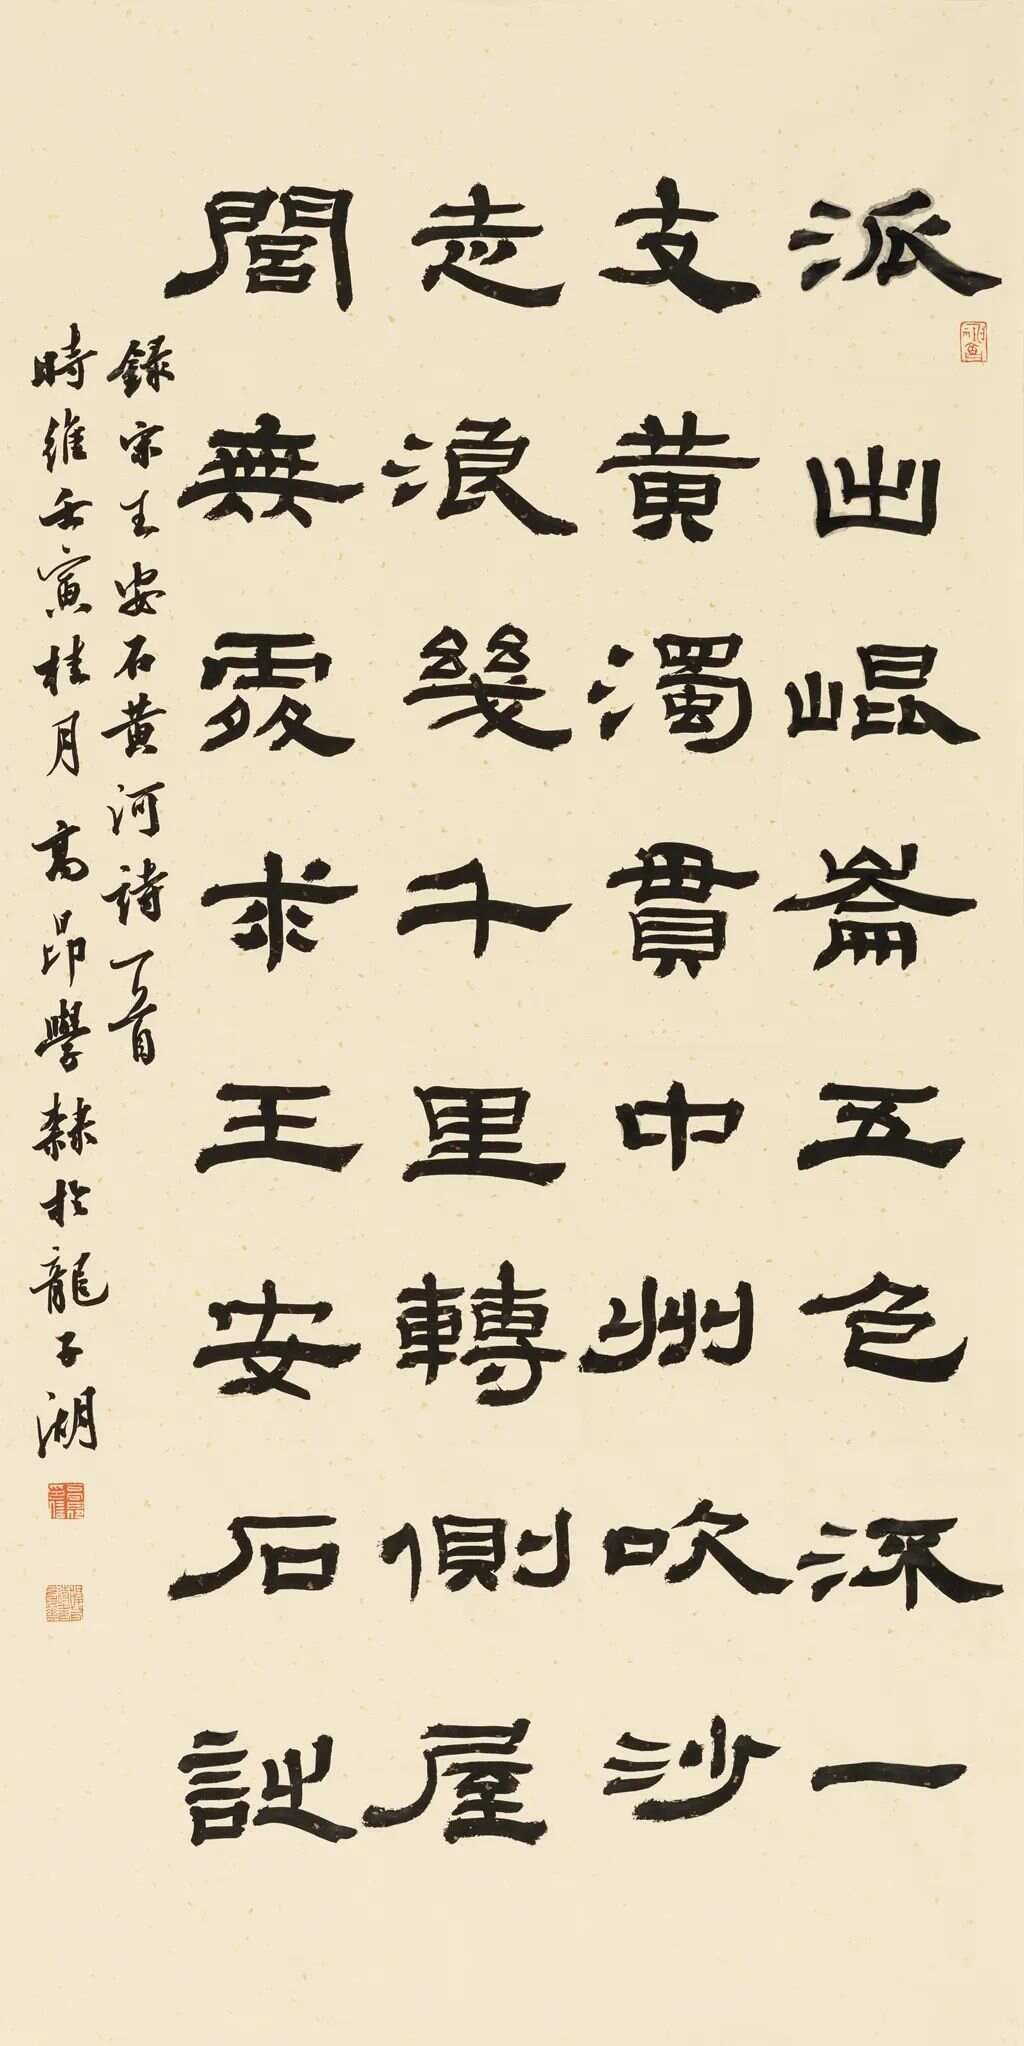 派出崐崙五色流一
支黃濁貫中州吹沙
走浪幾千里轉側屋
閭無處求王安石詩
錄宋王安石黃河詩一首
時維壬寅桂月高昂學隸於龍子湖